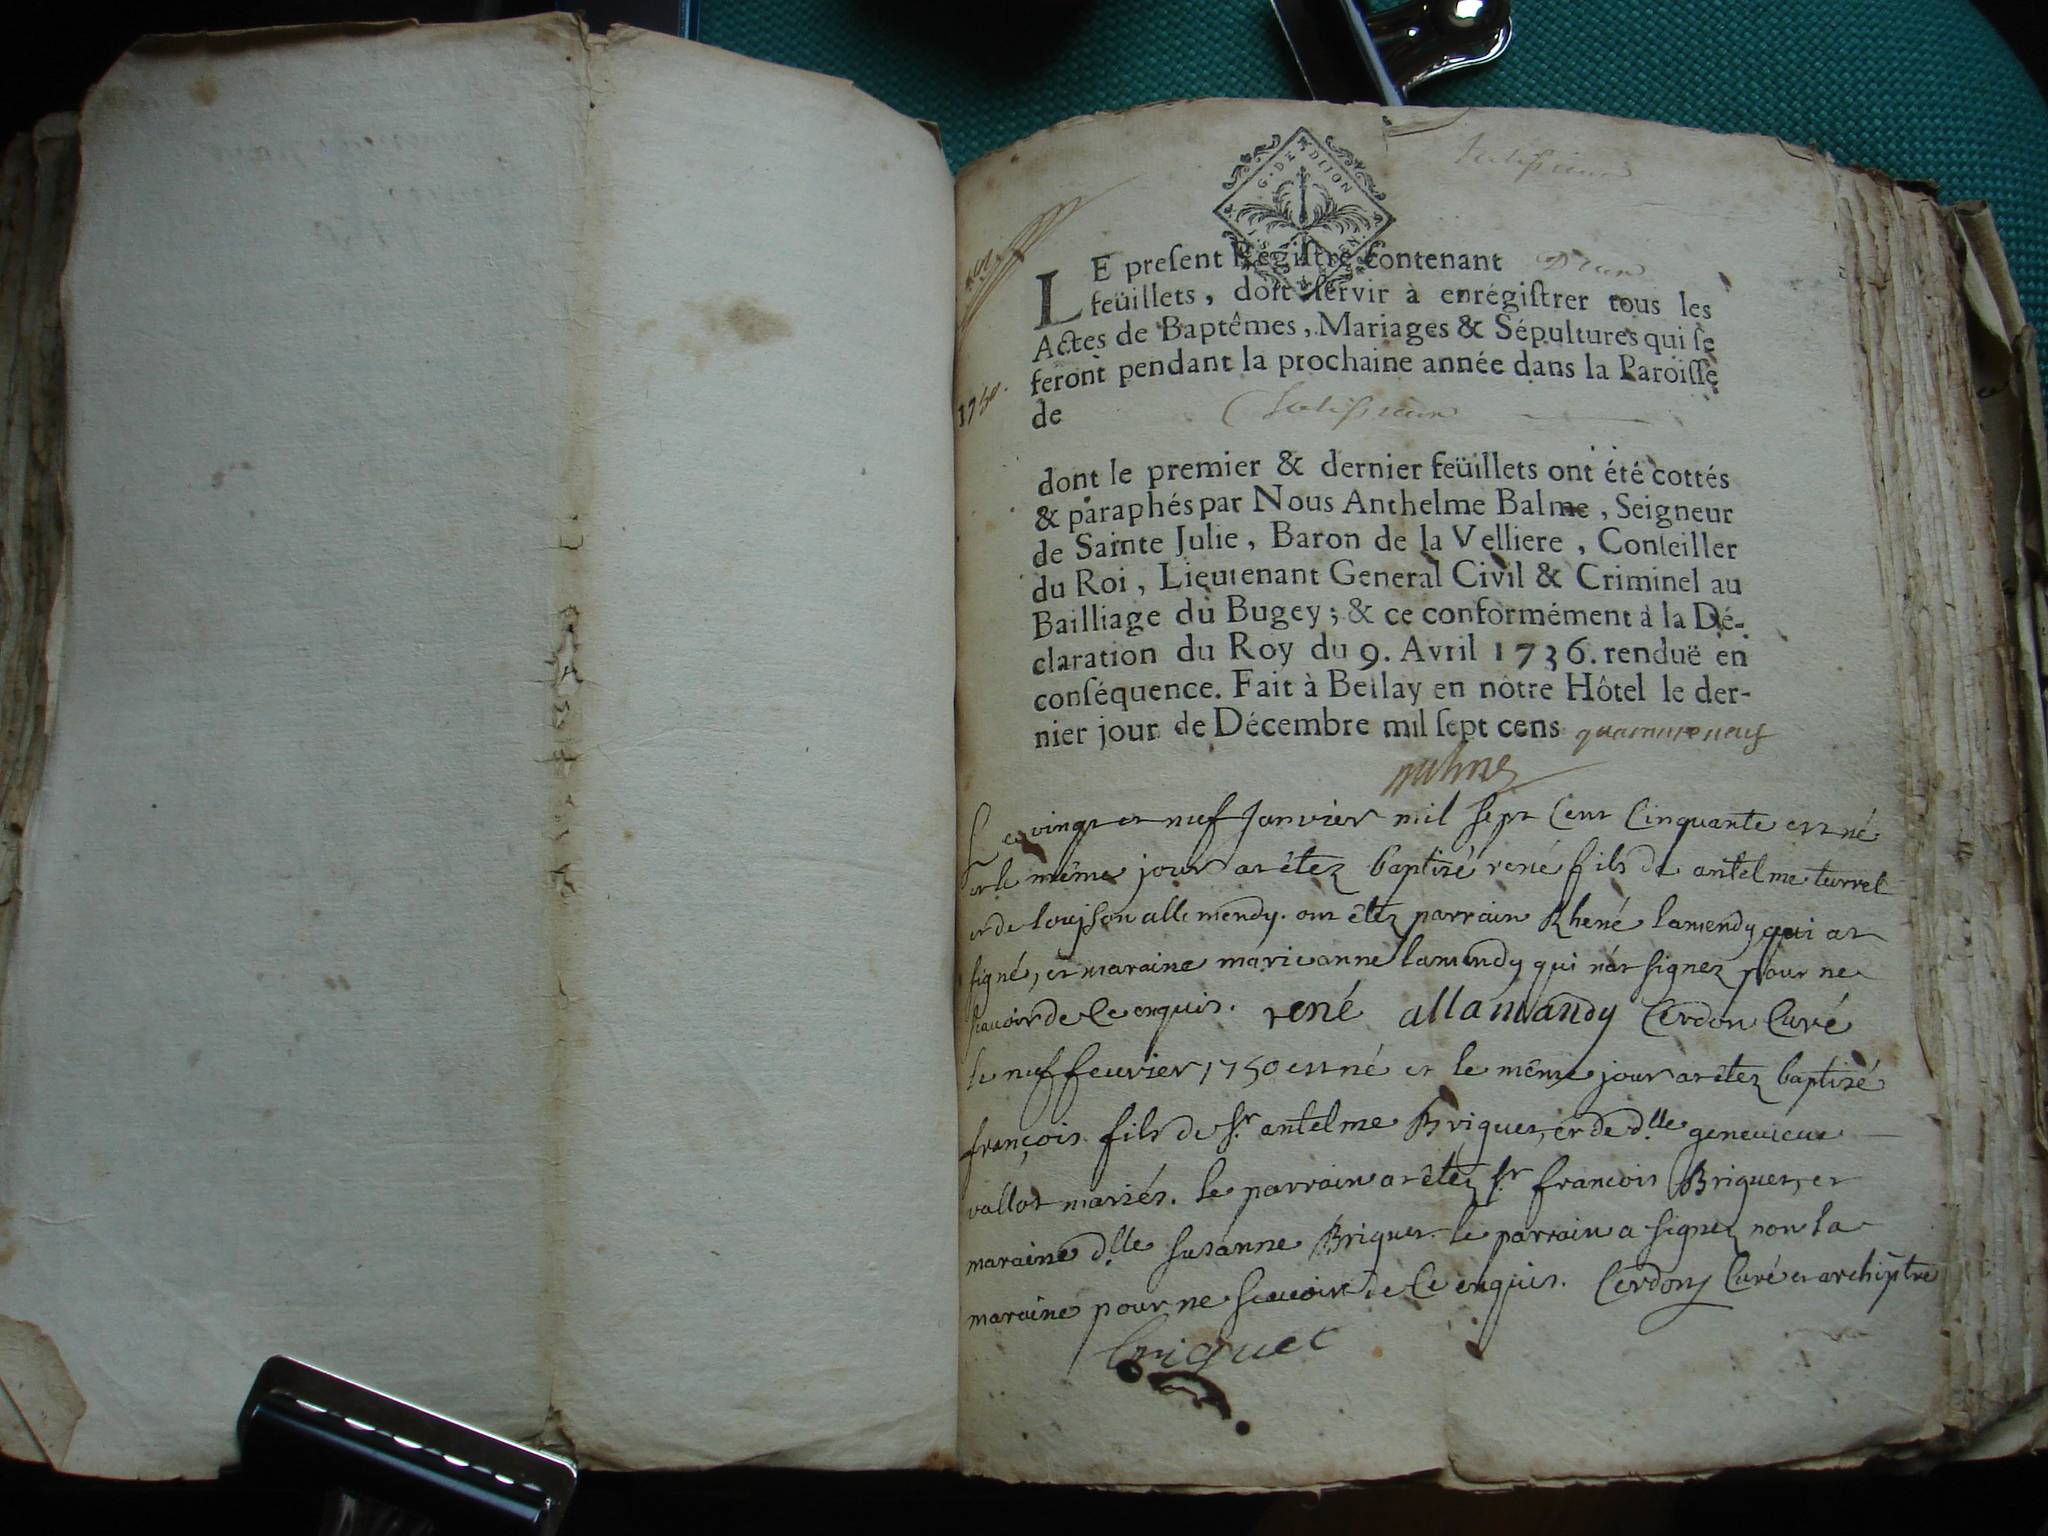 G. DE DIJON
LE preſent Régiſtre contenant
feüillets, doit ſervir à enrégiſtrer tous les
Actes de Baptêmes, Mariages & Sépultures qui ſe
feront pendant la prochaine année dans la Paroiſſe
1750.
de
dont le premier & dernier feüillets ont été cottés
& paraphés par Nous Anthelme Balme, Seigneur
de Sainte Julie, Baron de la Velliere, Conſeiller
du Roi, Lieutenant General Civil & Criminel au
Bailliage du Bugey; & ce conformément à la Dé-
claration du Roy du 9. Avril 1736. renduë en
conſéquence. Fait à Bellay en nôtre Hôtel le der-
nier jour de Décembre mil ſept cens quarante neuf
Balme
Le vingt et neuf Janvier mil sept Cent Cinquante est né
et le même jour at êtez baptisé rené fils de antelme turrel
et de louison allemendy. ont êtez parrain Rhené lamendy qui at
signé, et maraine marieanne lamendy qui n'at signez pour ne
scauoir de Ce enquis. rené allamandy Cerdon Curé
le neuf feurier 1750 est né et le même jour at êtez baptisé
françois fils de Sr. antelme Briquet, et de dlle geneuieue
vallot mariés. le parrain at êtez Sr francois Briquet, et
maraine dlle susanne Briquet. le parrain a signez non la
maraine pour ne scauoir de Ce enquis. Cerdon Curé et archiptre
briquet